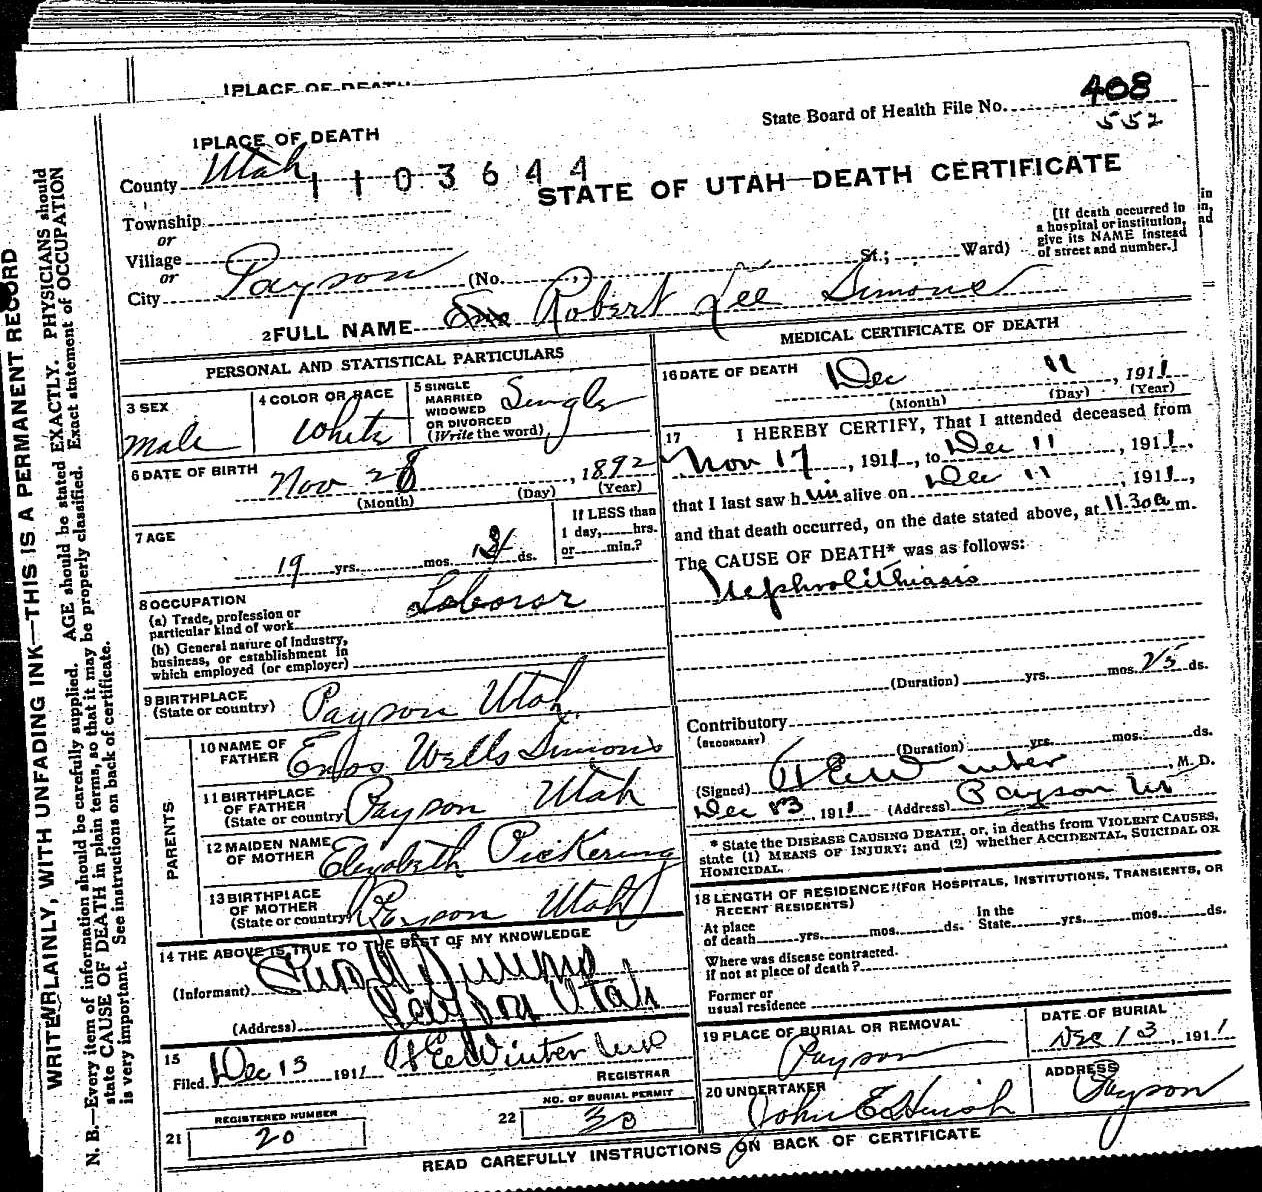 1 PLACE OF DEATH
State Board of Health File No. 408
552
1 PLACE OF DEATH
County Utah
1103644
STATE OF UTAH—DEATH CERTIFICATE
Township
or
Village
or
City Payson (No. St.; Ward)
[If death occurred in
a hospital or institution,
give its NAME instead
of street and number.]
2 FULL NAME Robert Lee Simons
PERSONAL AND STATISTICAL PARTICULARS
3 SEX
Male
4 COLOR OR RACE
White
5 SINGLE
MARRIED
WIDOWED
OR DIVORCED
(Write the word)
Single
6 DATE OF BIRTH
Nov 28, 1892
(Month) (Day) (Year)
7 AGE
19 yrs. mos. ds.
If LESS than
1 day, hrs.
or min.?
8 OCCUPATION
(a) Trade, profession or
particular kind of work Laborer
(b) General nature of industry,
business, or establishment in
which employed (or employer)
9 BIRTHPLACE
(State or country) Payson Utah
PARENTS
10 NAME OF
FATHER Enos Wells Simons
11 BIRTHPLACE
OF FATHER
(State or country) Payson Utah
12 MAIDEN NAME
OF MOTHER Elizabeth Pickering
13 BIRTHPLACE
OF MOTHER
(State or country) Payson Utah
14 THE ABOVE IS TRUE TO THE BEST OF MY KNOWLEDGE
(Informant)
(Address) Payson Utah
15
Filed Dec 13 1911 H E Winter
REGISTRAR
21 REGISTERED NUMBER
20
22 NO. OF BURIAL PERMIT
30
MEDICAL CERTIFICATE OF DEATH
16 DATE OF DEATH Dec 11, 1911
(Month) (Day) (Year)
17 I HEREBY CERTIFY, That I attended deceased from
Nov 17, 1911, to Dec 11, 1911,
that I last saw him alive on Dec 11, 1911,
and that death occurred, on the date stated above, at 11.30a m.
The CAUSE OF DEATH* was as follows:
Nephrolithiasis
(Duration) yrs. mos. 25 ds.
Contributory
(SECONDARY)
(Duration) yrs. mos. ds.
(Signed) H E Winter, M. D.
Dec 1911 (Address) Payson Ut
* State the DISEASE CAUSING DEATH, or, in deaths from VIOLENT CAUSES,
state (1) MEANS OF INJURY; and (2) whether ACCIDENTAL, SUICIDAL OR
HOMICIDAL.
18 LENGTH OF RESIDENCE (FOR HOSPITALS, INSTITUTIONS, TRANSIENTS, OR
RECENT RESIDENTS)
At place
of death yrs. mos. ds.
In the
State yrs. mos. ds.
Where was disease contracted.
if not at place of death?
Former or
usual residence
19 PLACE OF BURIAL OR REMOVAL
Payson
DATE OF BURIAL
Dec 13, 1911
20 UNDERTAKER
John E Huish
ADDRESS
Payson
READ CAREFULLY INSTRUCTIONS ON BACK OF CERTIFICATE
WRITE PLAINLY, WITH UNFADING INK—THIS IS A PERMANENT RECORD
N. B.—Every item of information should be carefully supplied. AGE should be stated EXACTLY. PHYSICIANS should
state CAUSE OF DEATH in plain terms, so that it may be properly classified. Exact statement of OCCUPATION
is very important. See instructions on back of certificate.